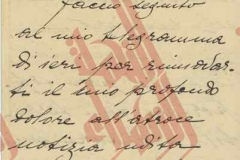 faccio seguito
al mio telegramma
di ieri per rinnovar-
ti il mio profondo
dolore all'atroce
notizia udita